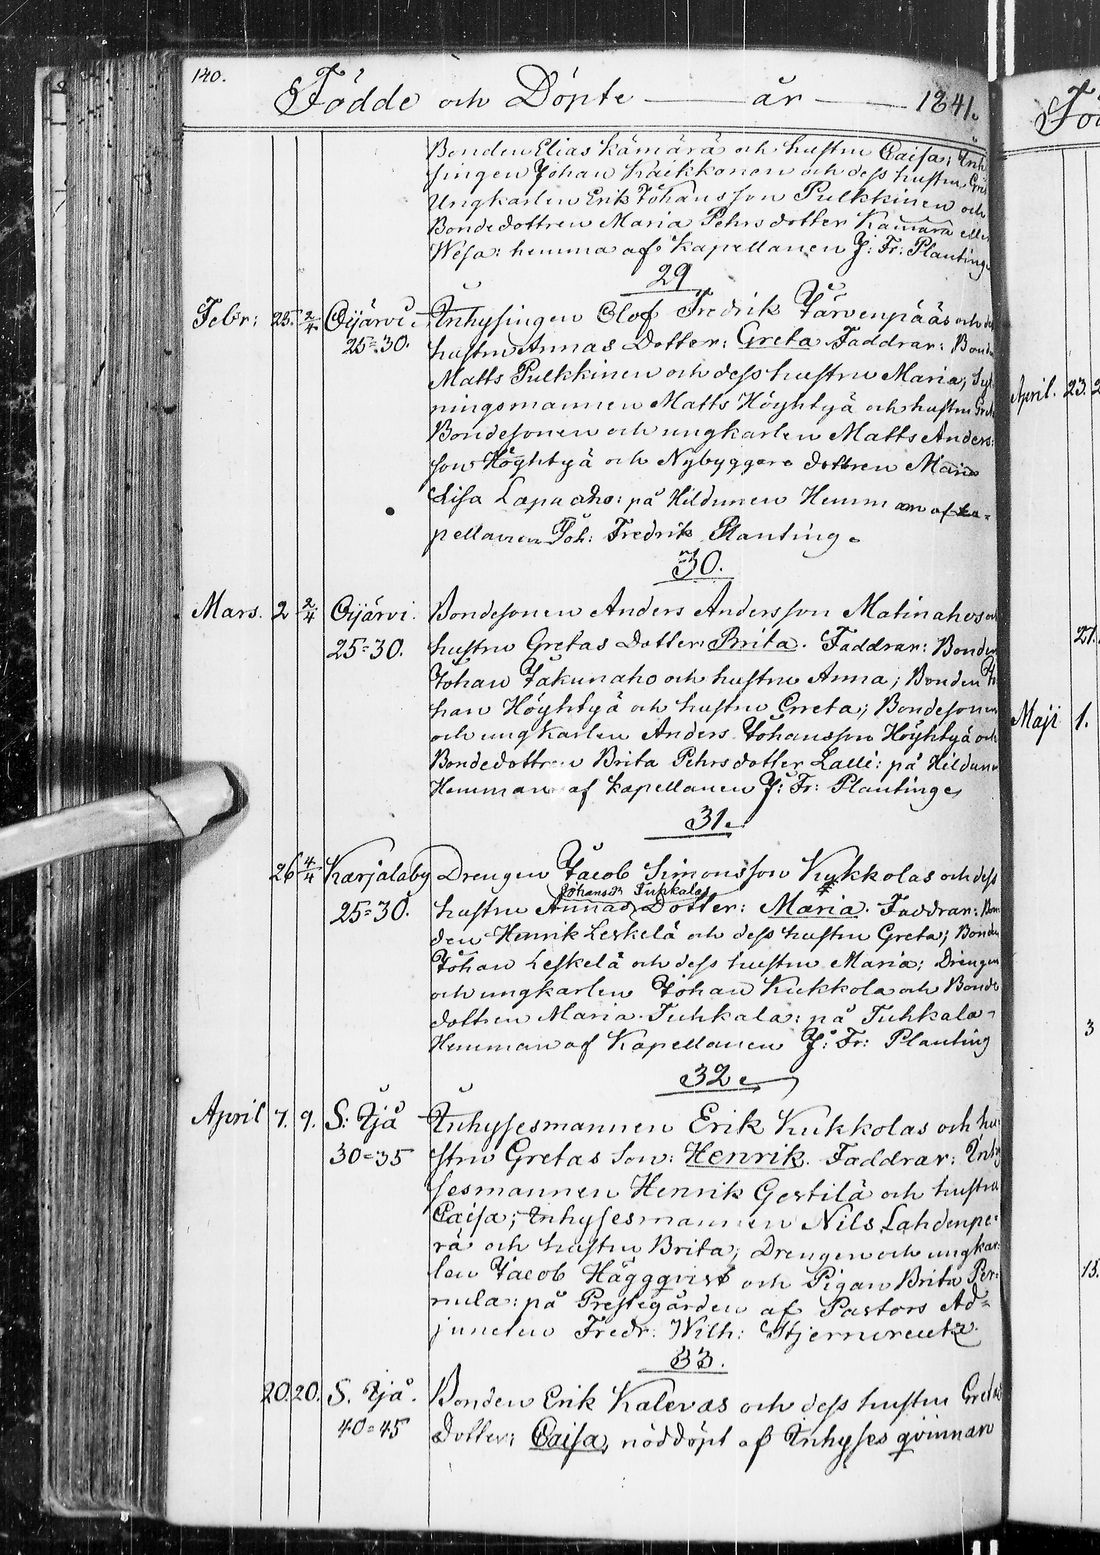 140.
Födde och Döpte — år — 1841.
Bonden Elias Kämärä och hustru Caisa; Inh
singen Johan Kaikkonen och dess hustru
Ungkarlen Erik Johansson Pulkkinen och
Bondedottren Maria Pehrsdotter Kämärä eller
Wesa: hemma af Kapellanen J: Fr: Planting
29
Febr: 25. 2/4. Oijärvi. Inhysingen Olof Fredrik Järvenpääs och
25=30. hustru Annas Dotter: Greta. Faddrar: Bond
Matts Pulkkinen och dess hustru Maria;
ningsmannen Matts Höyhtyä och hustru
Bondesonen och ungkarlen Matts Anders:
son Höyhtyä och Nybyggare dottren Maria
Lisa Lapuaho: på Hildunen Hemman af Ka=
pellanen Joh: Fredrik Planting.
30.
Mars. 2 2/4 Oijärvi. Bondesonen Anders Andersson Matinahos
25=30. hustru Gretas Dotter Brita. Faddrar: Bonden
Johan Jakunaho och hustru Anna; Bonden Jo
han Höyhtyä och hustru Greta; Bondesonen
och ungkarlen Anders Johansson Höyhtyä och
Bondedottren Brita Pehrsdotter Lalli: på Hildunen
Hemman af Kapellanen J: Fr: Planting
31.
26 4/4 Karjalaby Drengen Jacob Simonsson Kukkolas och dess
Johansdr Tuhkalas
25=30. hustru Annas Dotter: Maria. Faddrar: Bon
den Henrik Leskelä och dess hustru Greta; Bonden
Johan Leskelä och dess hustru Maria; Drengen
och ungkarlen Johan Kukkola och Bonde
dottren Maria Tuhkala: på Tuhkala=
Hemman af Kapellanen J: Fr: Planting
32.
April 7. 9. S: Ijå Inhysesmannen Erik Kukkolas och hu
30=35 stru Gretas Son: Henrik. Faddrar: Inhy
sesmannen Henrik Gestilä och hustru
Caisa; Inhysesmannen Nils Lahdenpe=
rä och hustru Brita; Drengen och ungkar
len Jacob Häggqvist och Pigan Brita Per=
nula: på Prestegården af Pastors Ad=
juncten Fredr: Wilh: Stjerncreutz.
33.
20. 20. S. Ijå. Bonden Erik Kalevas och dess hustru Gretas
40=45 Dotter: Caisa, nöddöpt af Inhyses qvinnan
April. 23.
27.
Maji 1.
3
15.